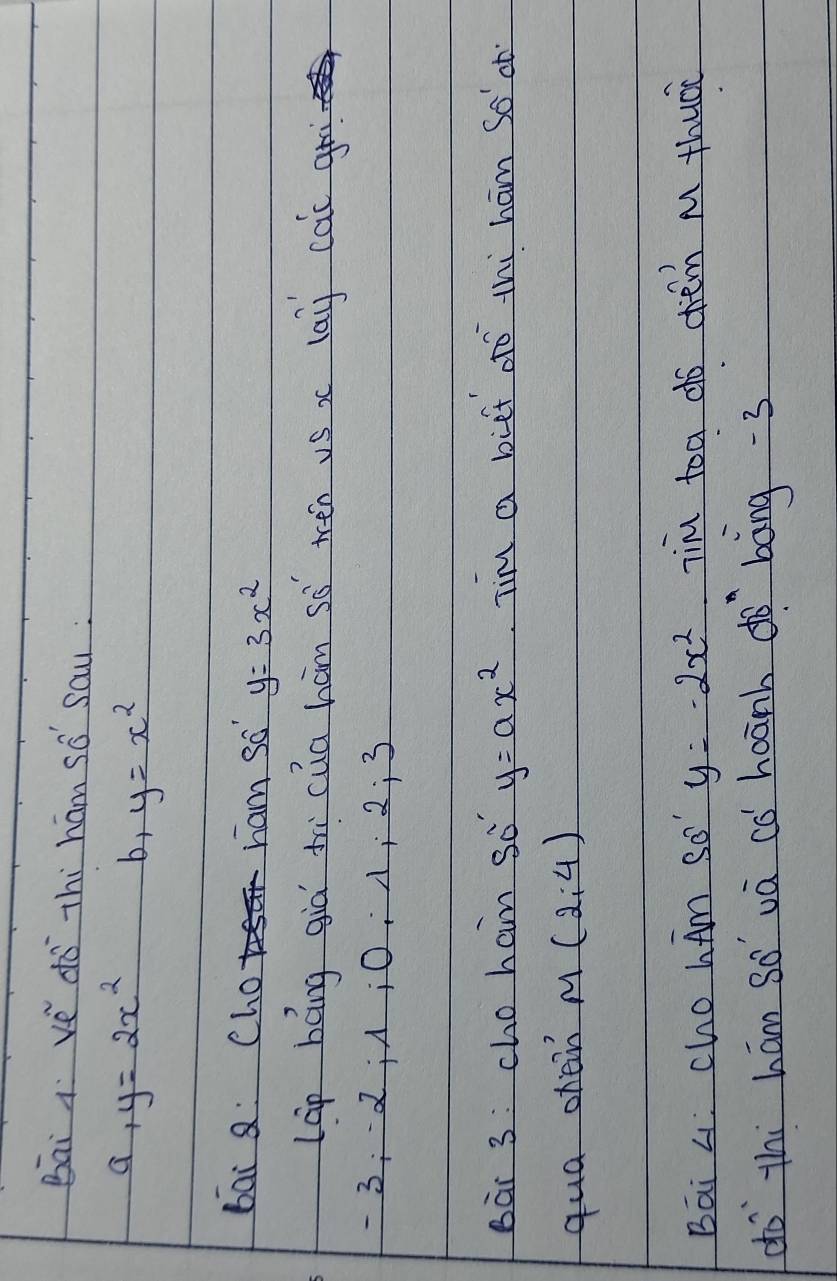 Bài 1: Vẽ đồ thị hàm số sau:
a, y = 2x² b, y = x²
Bài 2: Cho hàm số y = 3x²
Lập bảng giá trị của hàm số trên vs x lấy các gtri
-3; -2; 1; 0; 1; 2; 3
Bài 3: cho hàm số y = ax². Tìm a biết đồ thị hàm số đi
qua điểm M (2;4)
Bài 4: cho hàm số y = -2x². Tìm toạ độ điểm M thuộc
đồ thị hàm số và có hoành độ bằng -3